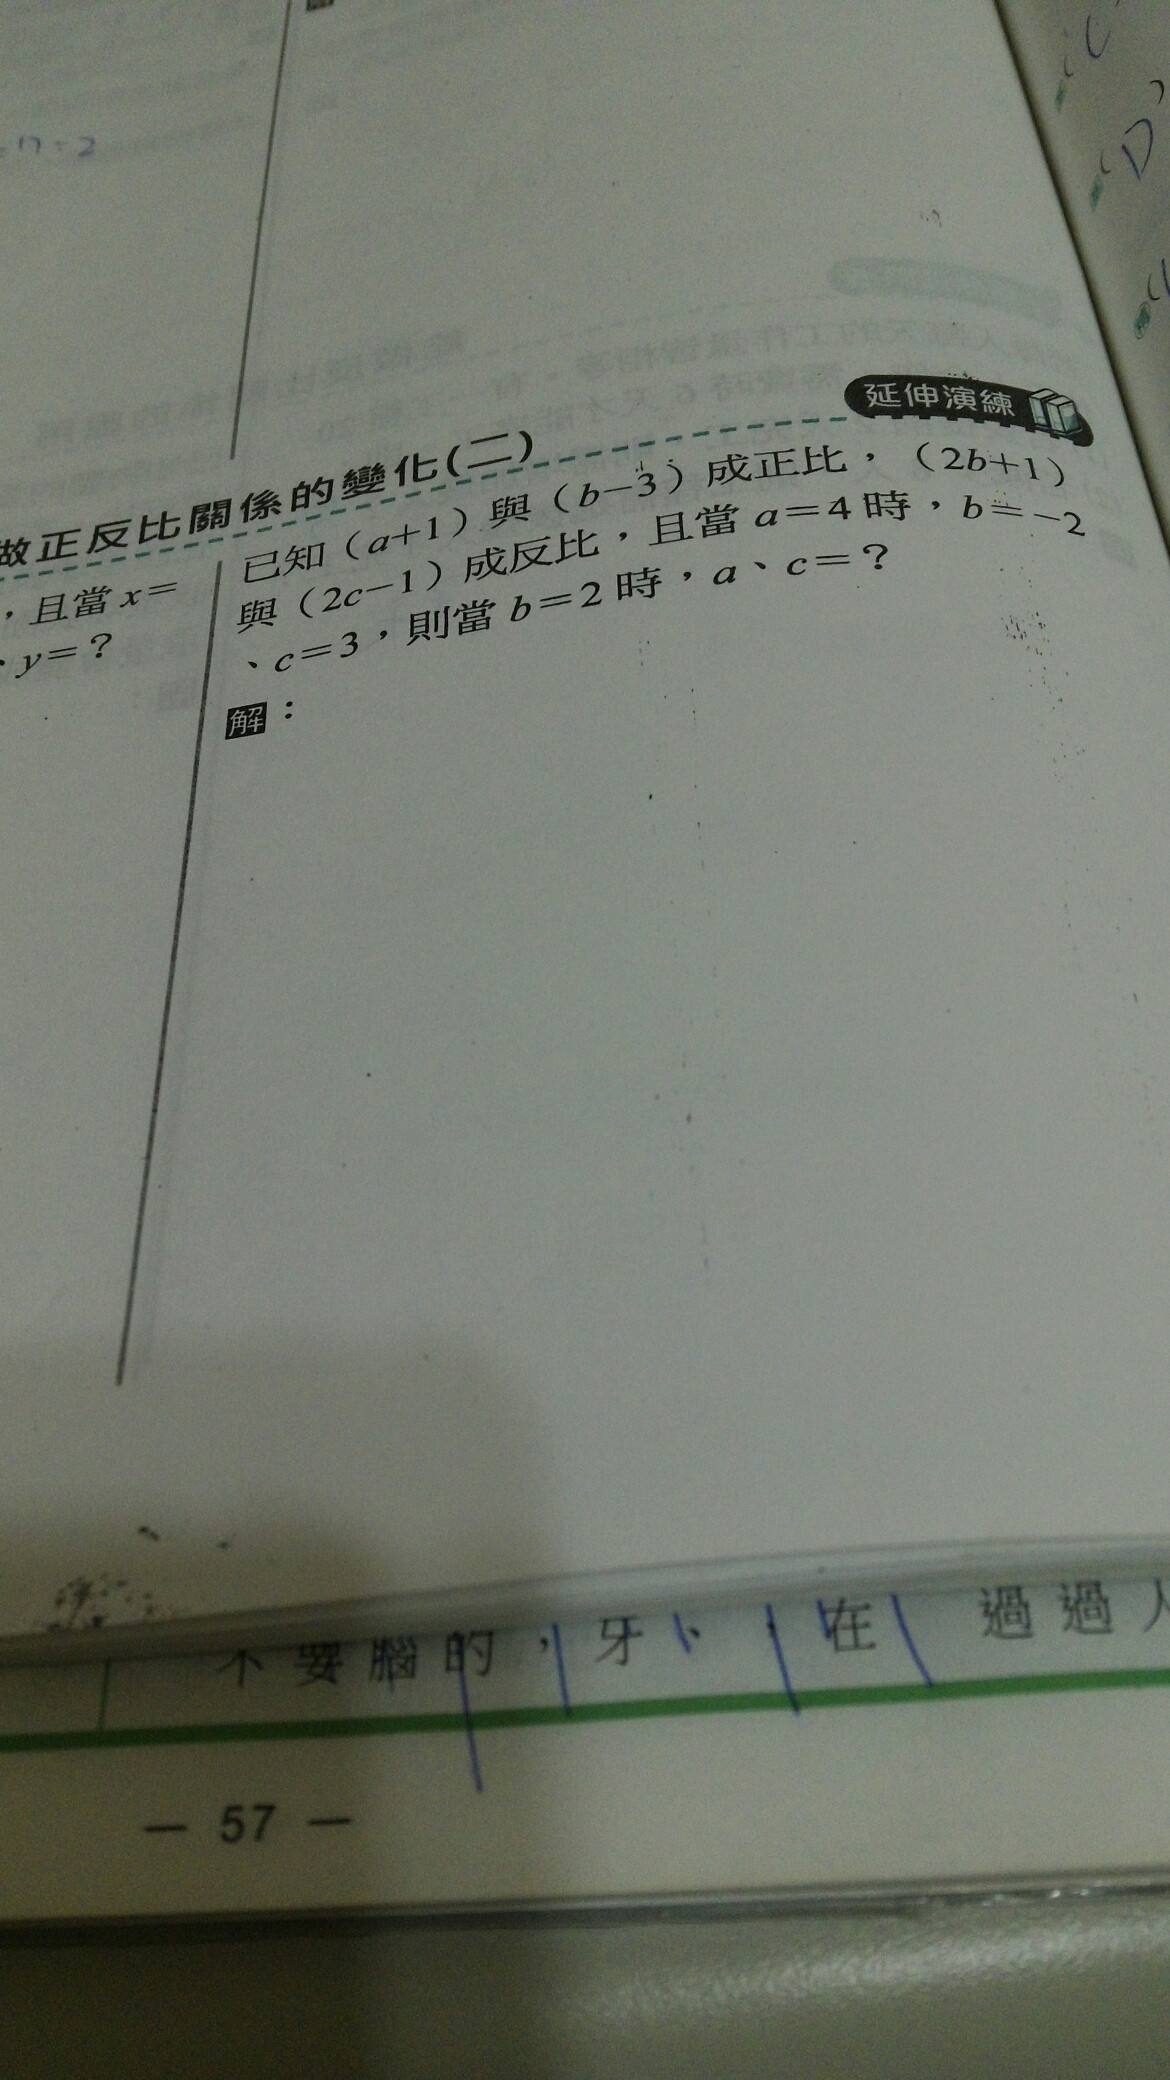 =17=2
延伸演練
做正反比關係的變化(二)
，且當x=
、y=？
已知（a+1）與（b-3）成正比，（2b+1）
與（2c-1）成反比，且當a=4時，b=-2
、c=3，則當b=2時，a、c=？
解：
不要腦的，牙、在 過過人
— 57 —